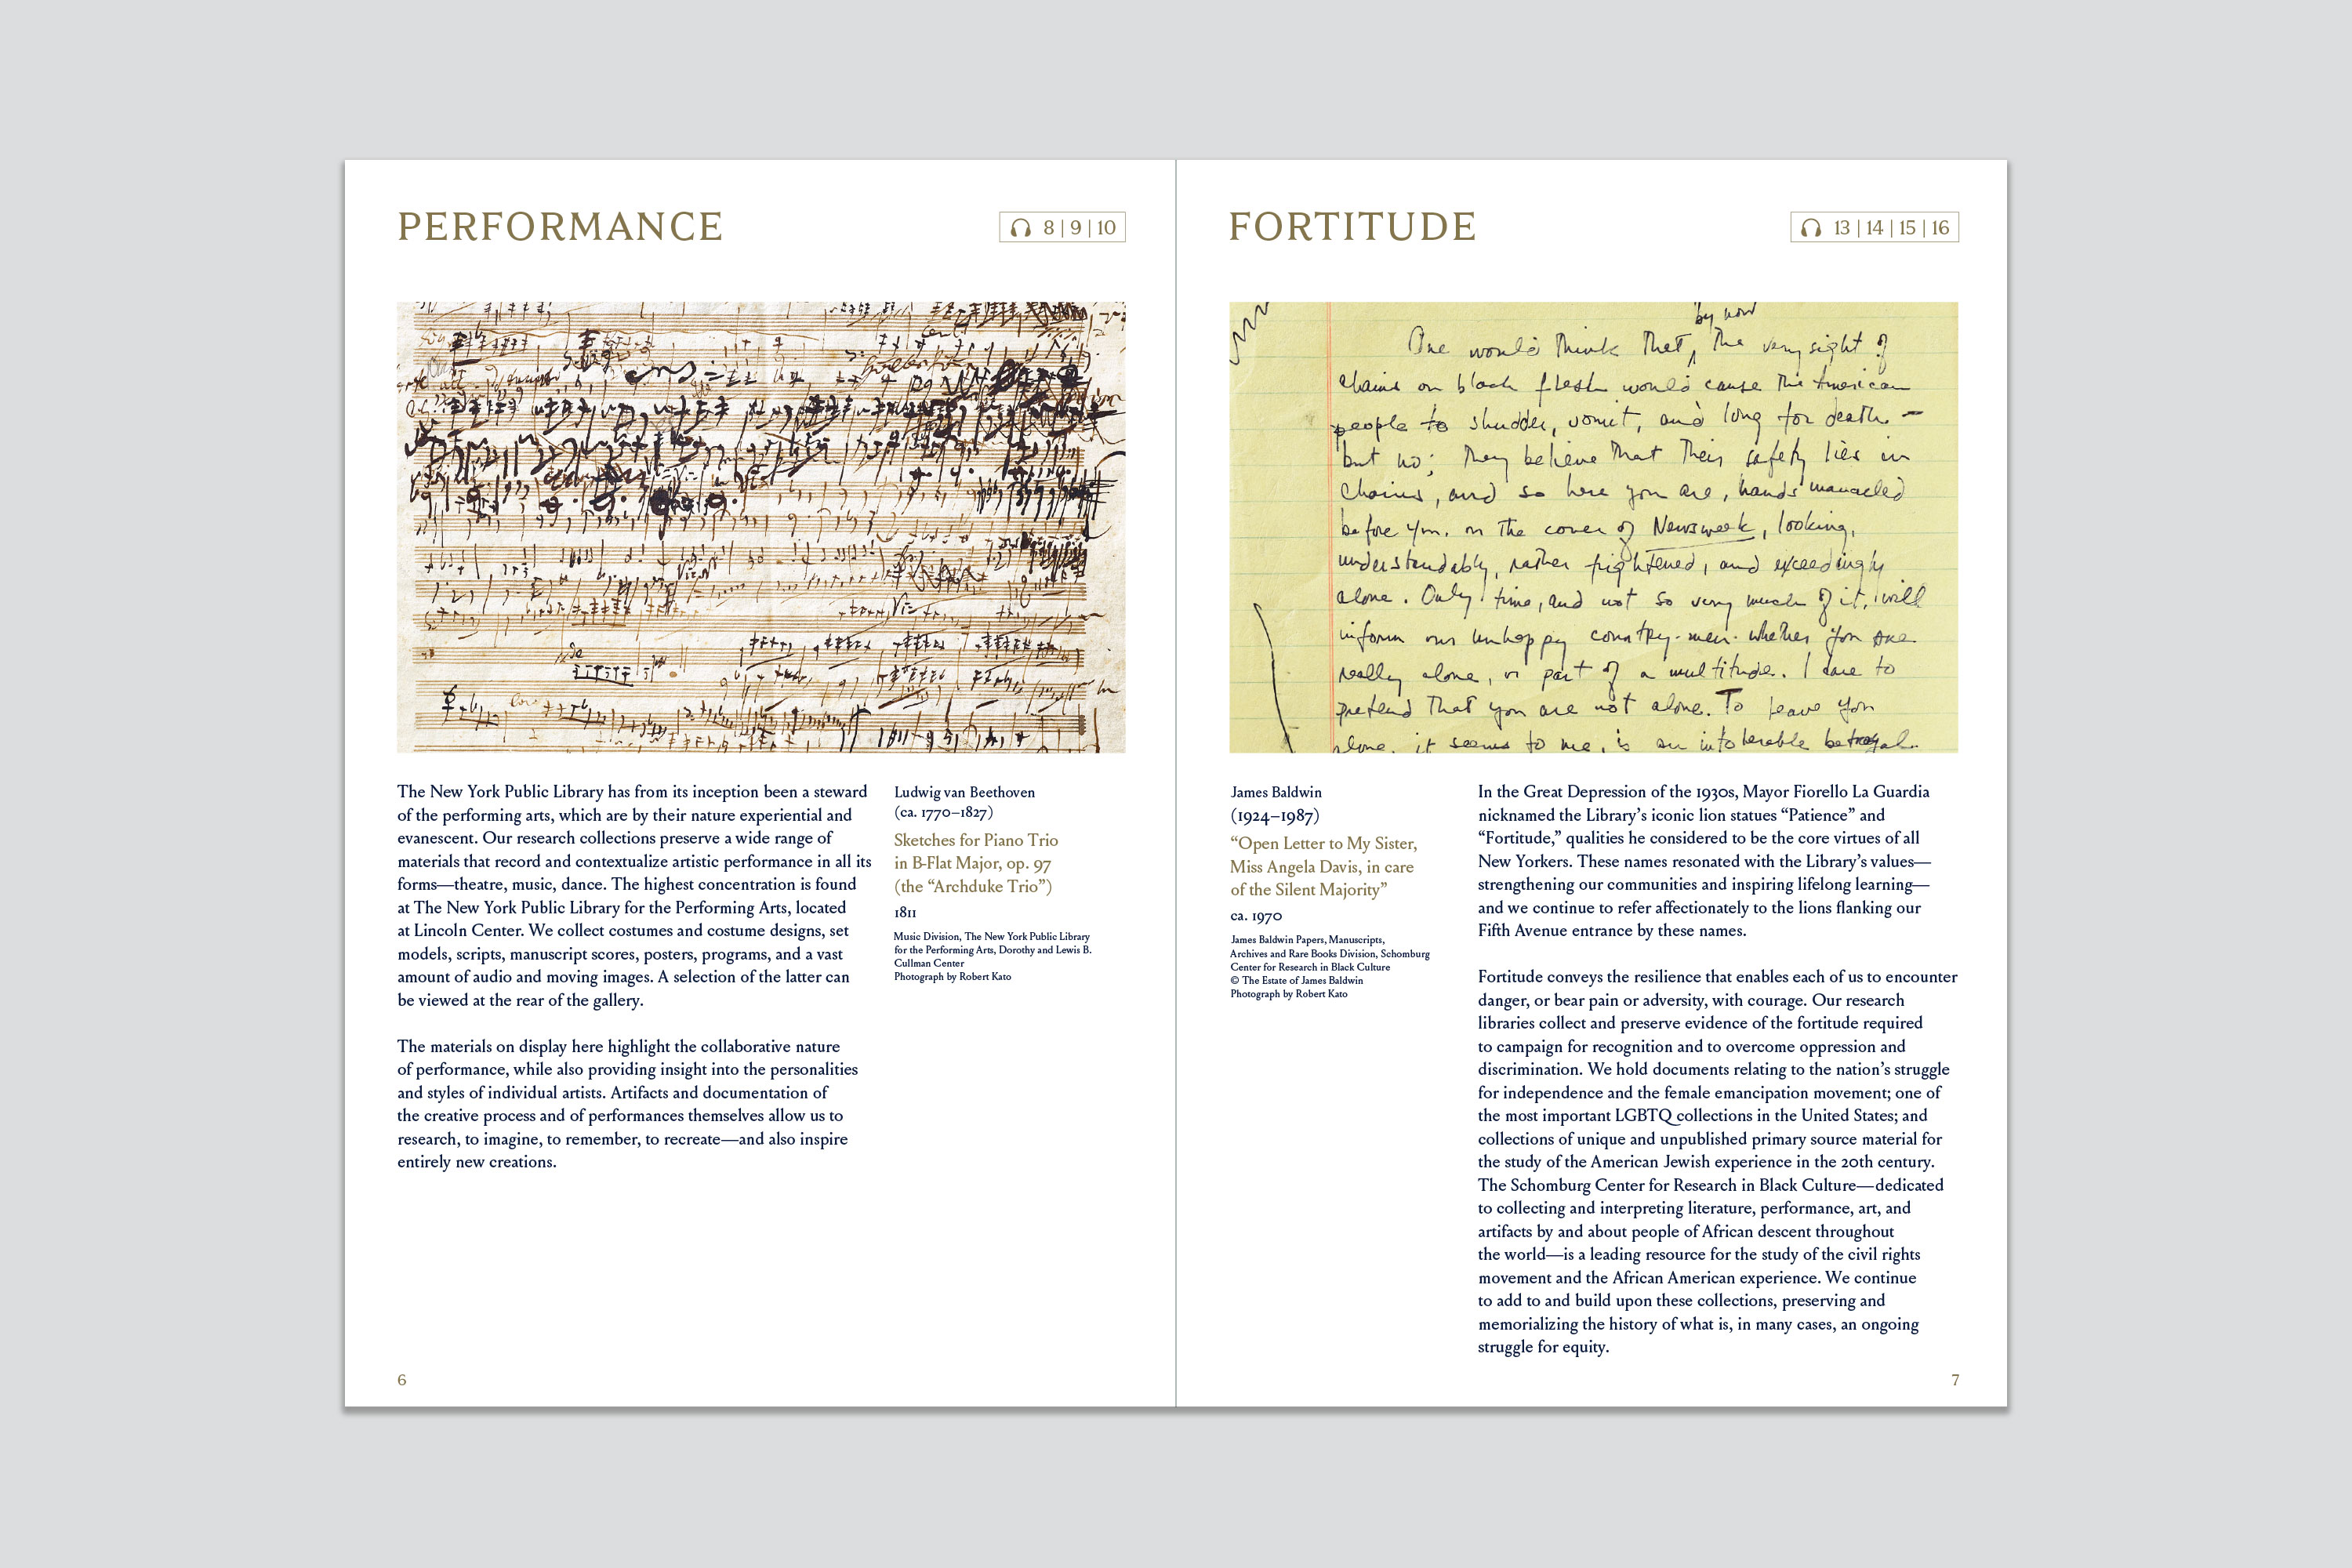 PERFORMANCE
8 | 9 | 10
The New York Public Library has from its inception been a steward
of the performing arts, which are by their nature experiential and
evanescent. Our research collections preserve a wide range of
materials that record and contextualize artistic performance in all its
forms—theatre, music, dance. The highest concentration is found
at The New York Public Library for the Performing Arts, located
at Lincoln Center. We collect costumes and costume designs, set
models, scripts, manuscript scores, posters, programs, and a vast
amount of audio and moving images. A selection of the latter can
be viewed at the rear of the gallery.
The materials on display here highlight the collaborative nature
of performance, while also providing insight into the personalities
and styles of individual artists. Artifacts and documentation of
the creative process and of performances themselves allow us to
research, to imagine, to remember, to recreate—and also inspire
entirely new creations.
Ludwig van Beethoven
(ca. 1770–1827)
Sketches for Piano Trio
in B-Flat Major, op. 97
(the “Archduke Trio”)
1811
Music Division, The New York Public Library
for the Performing Arts, Dorothy and Lewis B.
Cullman Center
Photograph by Robert Kato
6
FORTITUDE
13 | 14 | 15 | 16
by now
One would think that, the very sight of
chains on black flesh would cause the American
people to shudder, vomit, and long for death –
but no; they believe that their safety lies in
chains, and so here you are, hands manacled
before you. on the cover of Newsweek, looking,
understandably, rather frightened, and exceedingly
alone. Only time, and not so very much of it, will
inform our unhappy country-men whether you are
really alone, or part of a multitude. I dare to
pretend that you are not alone. To leave you
alone, it seems to me, is an intolerable betrayal.
James Baldwin
(1924–1987)
“Open Letter to My Sister,
Miss Angela Davis, in care
of the Silent Majority”
ca. 1970
James Baldwin Papers, Manuscripts,
Archives and Rare Books Division, Schomburg
Center for Research in Black Culture
© The Estate of James Baldwin
Photograph by Robert Kato
In the Great Depression of the 1930s, Mayor Fiorello La Guardia
nicknamed the Library’s iconic lion statues “Patience” and
“Fortitude,” qualities he considered to be the core virtues of all
New Yorkers. These names resonated with the Library’s values—
strengthening our communities and inspiring lifelong learning—
and we continue to refer affectionately to the lions flanking our
Fifth Avenue entrance by these names.
Fortitude conveys the resilience that enables each of us to encounter
danger, or bear pain or adversity, with courage. Our research
libraries collect and preserve evidence of the fortitude required
to campaign for recognition and to overcome oppression and
discrimination. We hold documents relating to the nation’s struggle
for independence and the female emancipation movement; one of
the most important LGBTQ collections in the United States; and
collections of unique and unpublished primary source material for
the study of the American Jewish experience in the 20th century.
The Schomburg Center for Research in Black Culture—dedicated
to collecting and interpreting literature, performance, art, and
artifacts by and about people of African descent throughout
the world—is a leading resource for the study of the civil rights
movement and the African American experience. We continue
to add to and build upon these collections, preserving and
memorializing the history of what is, in many cases, an ongoing
struggle for equity.
7